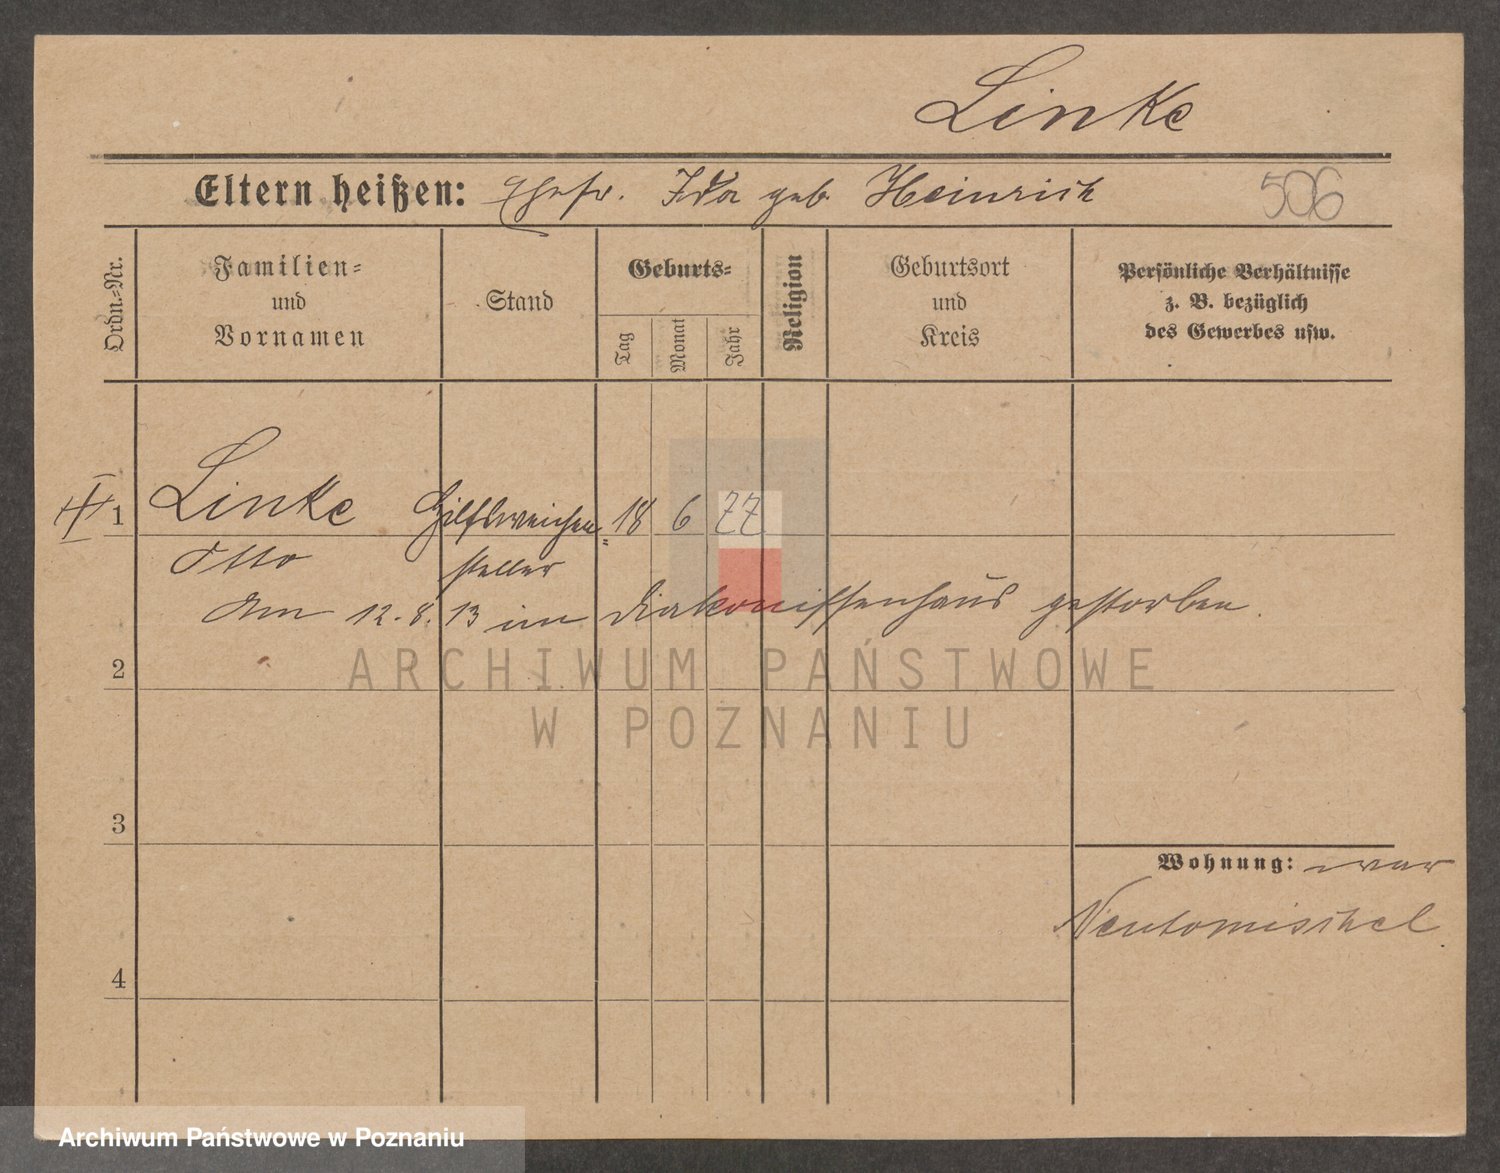 Linke
Eltern heißen: Ehefr. Ida geb. Heinrich 506
Ordn.-Nr.
Familien-
und
Vornamen
Stand
Geburts-
Tag
Monat
Jahr
Religion
Geburtsort
und
Kreis
Persönliche Verhältnisse
z. B. bezüglich
des Gewerbes usw.
1 Linke Hilfsweichen- 18 6 77
Otto steller
Am 12.8.13 im Diakonissenhaus gestorben.
2
ARCHIWUM PAŃSTWOWE
W POZNANIU
3
Wohnung: war
Neutomischel
4
Archiwum Państwowe w Poznaniu